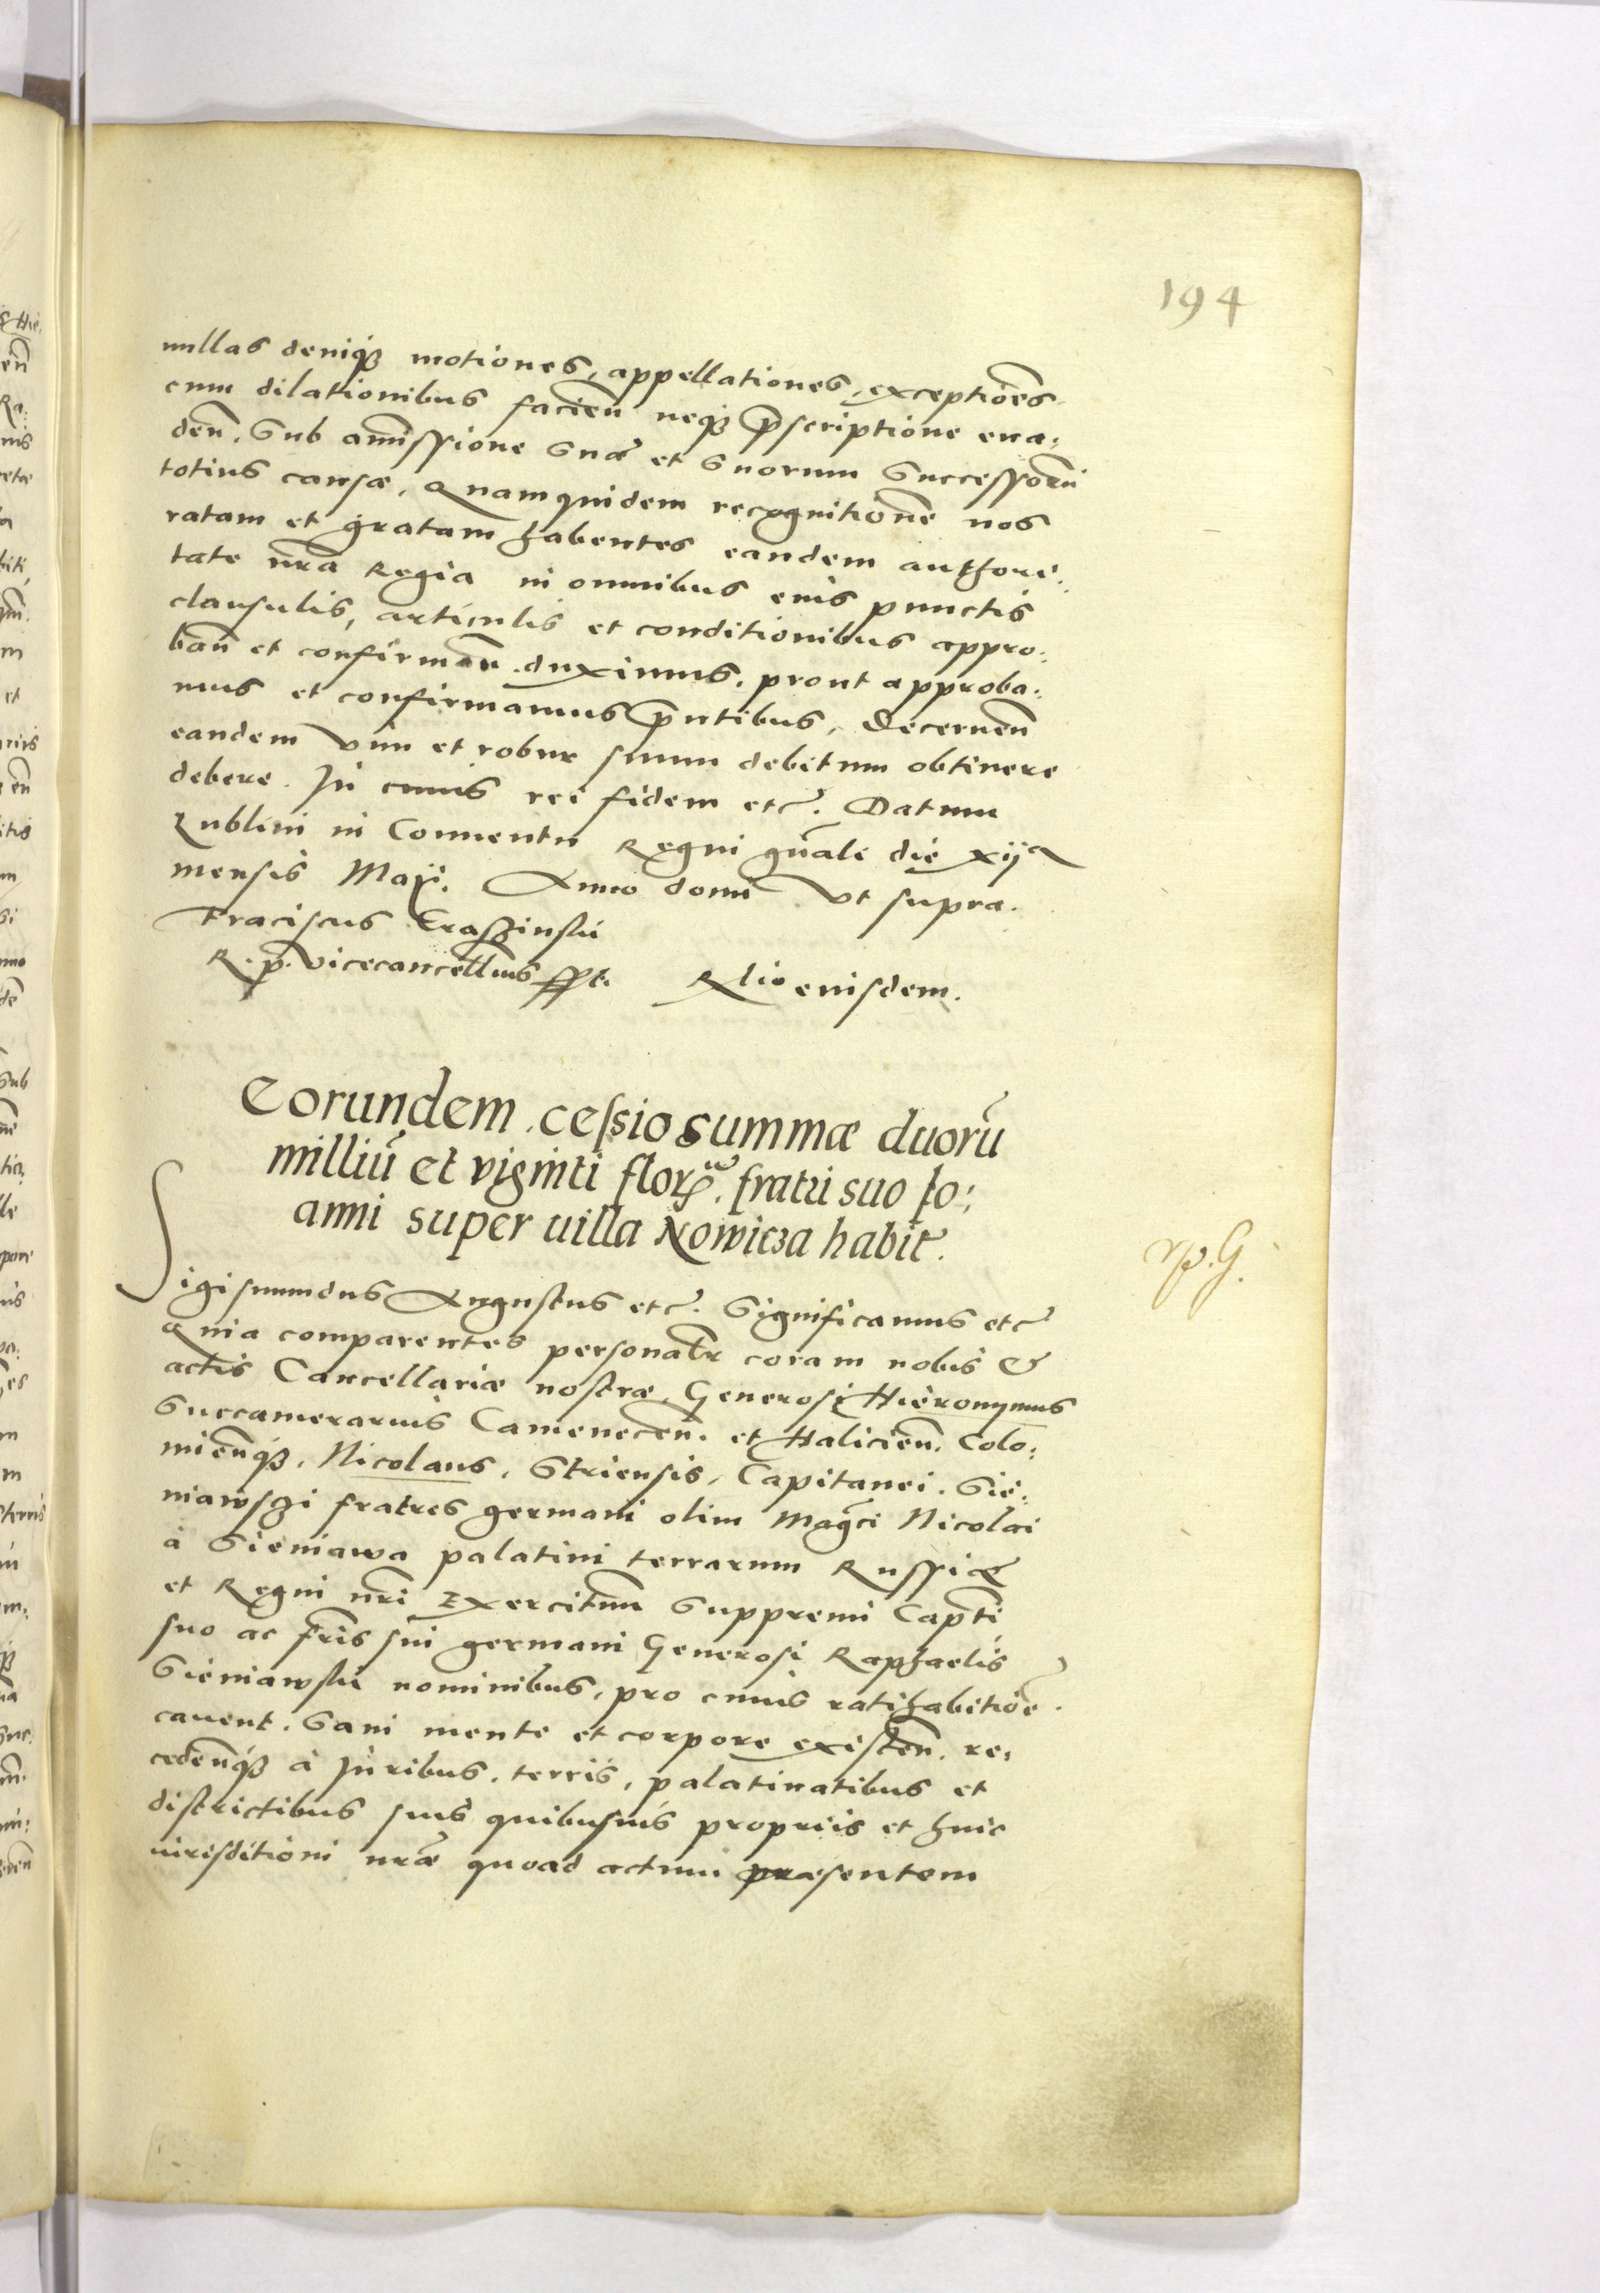 194
nullas deniqȝ motiones, appellationes, exceptiões
cum dilationibus facieñ neqȝ p̄scriptione eua:
deñ. Sub amissione sua et suorum successorũ
totius causæ. Quamquidem recognitionẽ nos
ratam et gratam habentes eandem authori:
tate nr̃a Regia in omnibus eius punctis
clausulis, articulis et conditionibus appro:
bañ et confirmañ duximus. prout approba:
mus et confirmamus p̄ntibus, Decerneñ
eandem vim et robur suum debitum obtinere
debere. In cuius rei fidem etc. Datum
Lublini in Conuentu Regni gñali die xijª
mensis Maij. Anno domi vt supra.
Franciscus Crasinski
R. p. vicecancellarius sspt. Rlio eiusdem.
Eorundem cessio summæ duorũ
milliũ et viginti flor. fratri suo Io:
anni super villa Nowicza habit.
rp. G.
Sigismundus Augustus etc. Significamus etc
Quia comparentes personalr̃ coram nobis &
actis Cancellariæ nostræ, Generosi Hieronymus
Succamerarius Camenecen̄. et Halicien̄. Colo:
mien̄qȝ, Nicolaus, Striensis, Capitanei. Sie:
niawszi fratres germani olim Mag̃ci Nicolai
à Sieniawa palatini terrarum Russiæ
et Regni nr̃i Exercituum Suppremi Capt̃i
suo ac fr̃is sui germani Generosi Raphaelis
Sieniawski nominibus, pro cuius ratihabitiõe
cauent. Sani mente et corpore existen̄. re:
ceden̄qȝ à Iuribus, terris, palatinatibus et
districtibus suis quibusuis propriis et huic
iurisditioni nr̃æ quoad actum præsentem